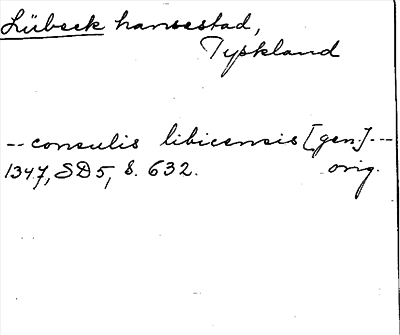 Lübeck hansestad,
Tyskland
-- consulis libicensis [gen.] ---
1347, SD5, s. 632. orig.